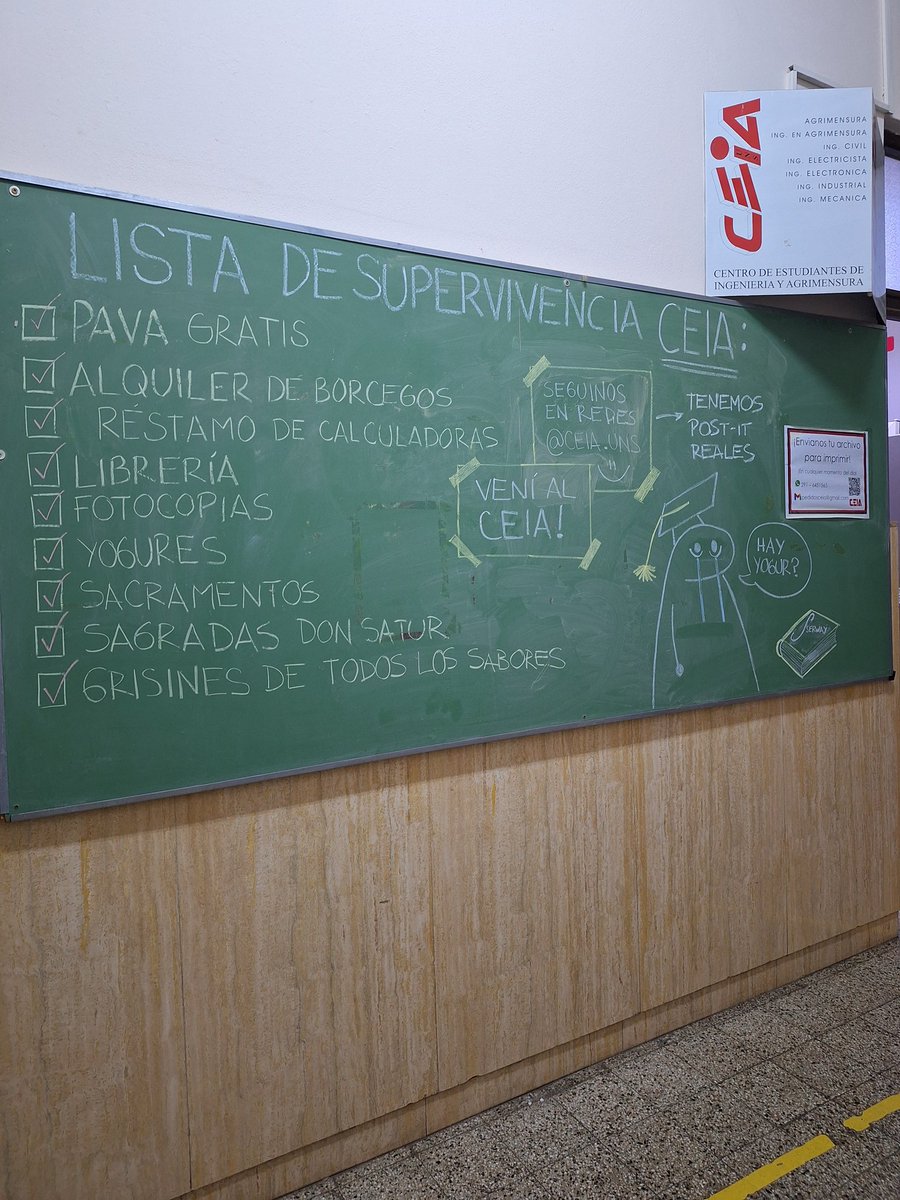 LISTA DE SUPERVIVENCIA CEIA:
PAVA GRATIS
ALQUILER DE BORCEGOS
RÉSTAMO DE CALCULADORAS
LIBRERÍA
FOTOCOPIAS
YOGURES
SACRAMENTOS
SAGRADAS DON SATUR
GRISINES DE TODOS LOS SABORES
SEGUINOS
EN REDES
@CEIA.UNS
VENÍ AL
CEIA!
TENEMOS
POST-IT
REALES
HAY
YOGUR?
SERWAY
CEIA
AGRIMENSURA
ING. EN AGRIMENSURA
ING. CIVIL
ING. ELECTRICISTA
ING. ELECTRONICA
ING. INDUSTRIAL
ING. MECANICA
CENTRO DE ESTUDIANTES DE
INGENIERIA Y AGRIMENSURA
¡Envianos tu archivo
para imprimir!
En cualquier momento del día
CEIA